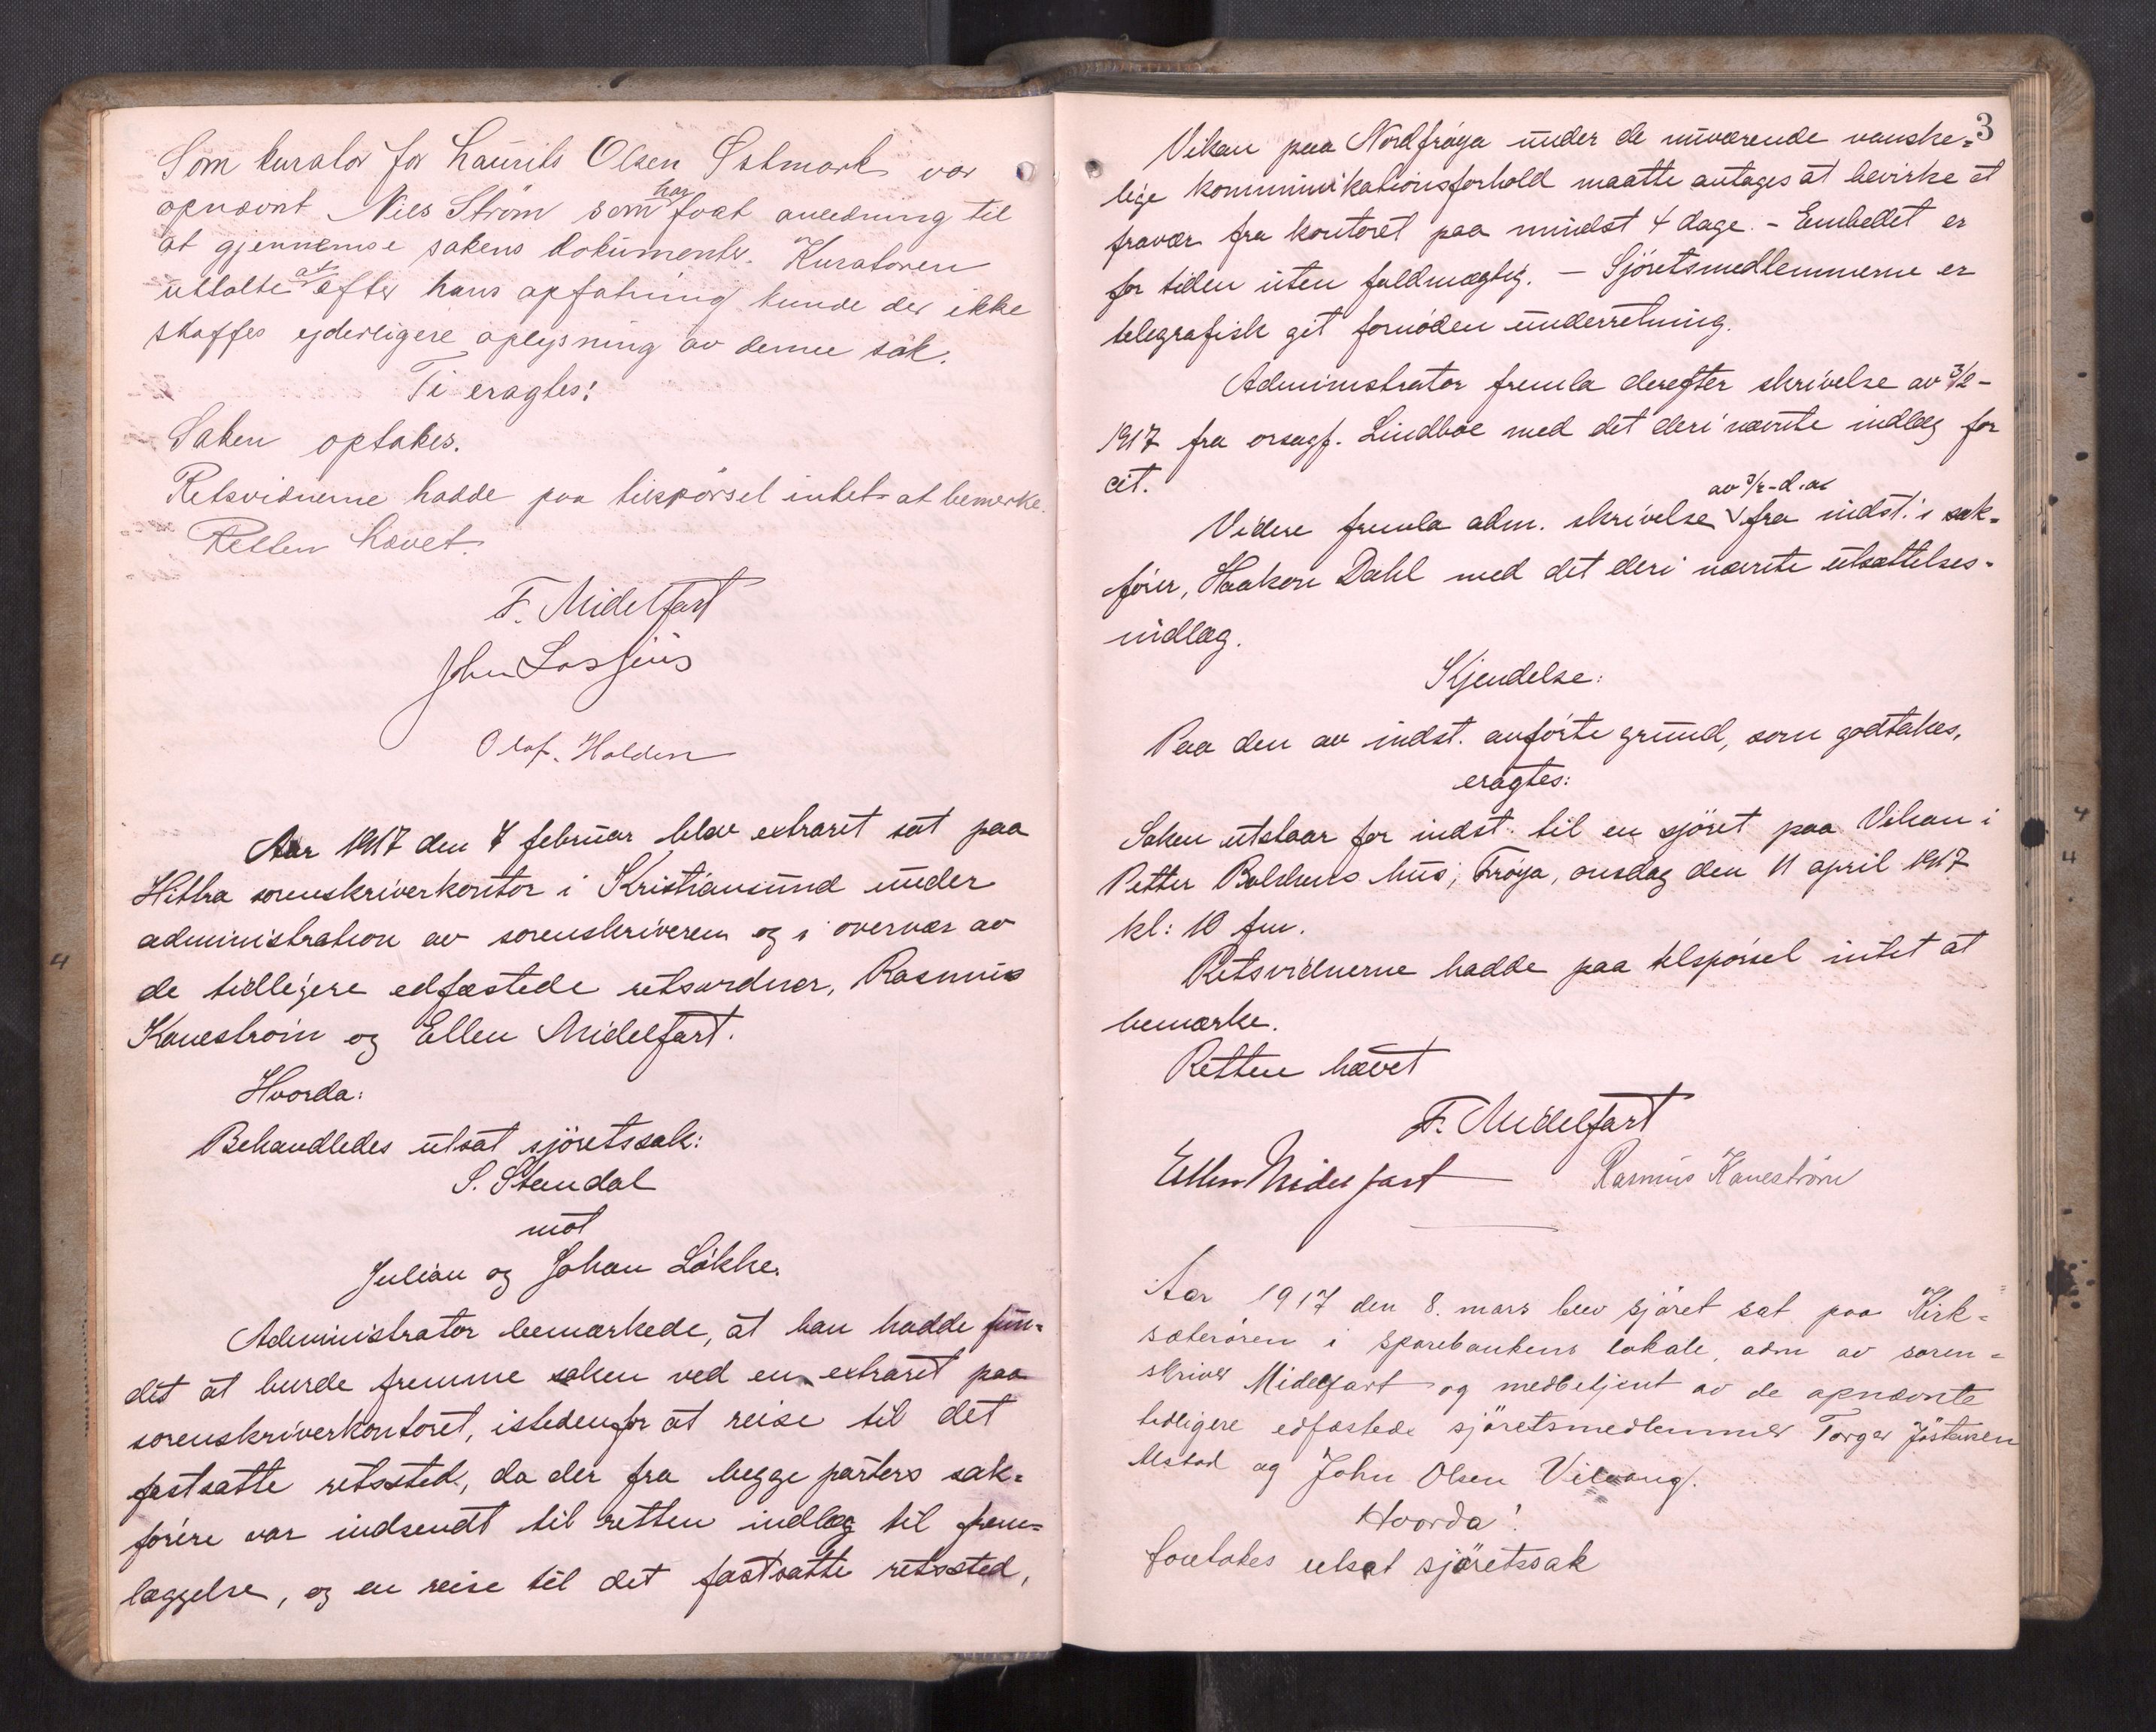 Som kurator for Laurits Olsen Østmark var
opnævnt Niels Strøm som har faat anledning til
at gjennemse sakens dokumenter. Kuratoren
uttalte at efter hans opfatning kunde der ikke
skaffes yderligere oplysning av denne sak.
Ti eragtes:
Saken optakes.
Retsvidnerne hadde paa tilspörsel intet at bemerke.
Retten hævet.
F. Midelfart
John Lossius
Olaf. Holden
Aar 1917 den 7 februar blev extraret sat paa
Hitra sorenskriverkontor i Kristiansund under
administration av sorenskriveren og i overvær av
de tidligere edfæstede retsvidner, Rasmus
Kanestrøm og Ellen Midelfart.
Hvorda:
Behandledes utsat sjöretssak:
S. Stendal
mot
Julian og Johan Løkke.
Administrator bemærkede, at han hadde fun=
det at burde fremme saken ved en extraret paa
sorenskriverkontoret, istedenfor at reise til det
fastsatte retssted, da der fra begge parters sak=
førere var indsendt til retten indlæg til frem=
læggelse, og en reise til det fastsatte retssted,
3
Vikan paa Nordfrøya under de nuværende vanske=
lige kommunikationsforhold maatte antages at bevirke et
fravær fra kontoret paa mindst 4 dage. - Embedet er
for tiden uten fuldmægtig. - Sjöretsmedlemmerne er
telegrafisk git fornøden underretning.
Administrator fremla derefter skrivelse av 3/2 -
1917 fra orsagf. Lindboe med det deri nævnte indlæg for
cit.
av 3/2 - d. aa
Videre fremla adm. skrivelse fra indst.'s sak=
fører, Haakon Dahl med det deri nævnte utsættelses-
indlæg.
Kjendelse:
Paa den av indst. anførte grund, som godtakes,
eragtes:
Saken utstaar for indst. til en sjöret paa Vikan i
Petter hus, Frøya, onsdag den 11 april 1917
kl: 10 fm.
Retsvidnerne hadde paa tilspørsel intet at
bemærke.
Retten hævet
F. Midelfart
Ellen Midelfart Rasmus Kanestrøm
Aar 1917 den 8. mars blev sjöret sat paa Kirk=
sæterören i sparebankens lokale, adm av soren=
skriver Midelfart og medbetjent av de opnævnte
tidligere edfæstede sjöretsmedlemmer Torger Jöstensen
og John Olsen Vilvang.
Hvorda:
foretokes utsat sjöretssak